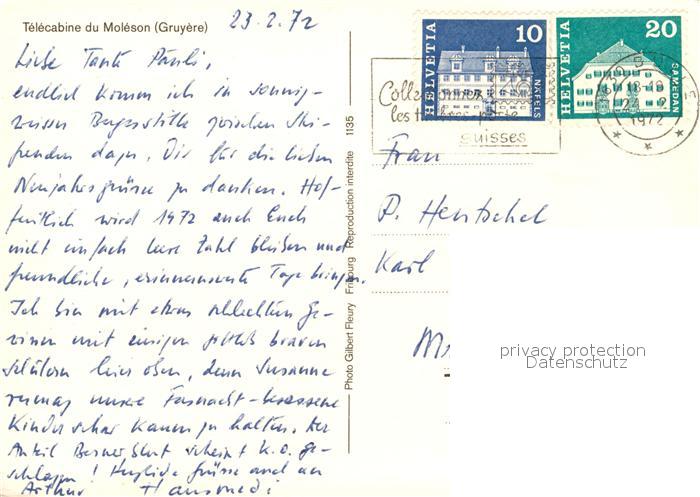 Télécabine du Moléson (Gruyère)
23.2.72
Liebe Tante Pauli,
endlich komm ich in sonnig-
weisser Bergesstille zwischen Ski-
freuden dazu, Dir für die lieben
Neujahrsgrüsse zu danken. Hof-
fentlich wird 1972 auch Euch
nicht einfach leere Zahl bleiben und
freundliche, erinnernswerte Tage bringen.
Ich bin mit etwas schlechtem Ge-
wissen mit einigen braven
Schülern hier oben, denn Susanne
vermag unsere Fasnacht-besessene
Kinderschar kaum zu halten. Der
Anteil Bernerblut scheint k.o. ge-
schlagen! Herzliche Grüsse auch an
Arthur Hansruedi
Photo Gilbert Fleury Fribourg Reproduction interdite 1135
HELVETIA 10 NÄFELS
HELVETIA 20 SAMEDAN
les timbres-poste
suisses
1972
Frau
P. Hentschel
Karl
privacy protection
Datenschutz